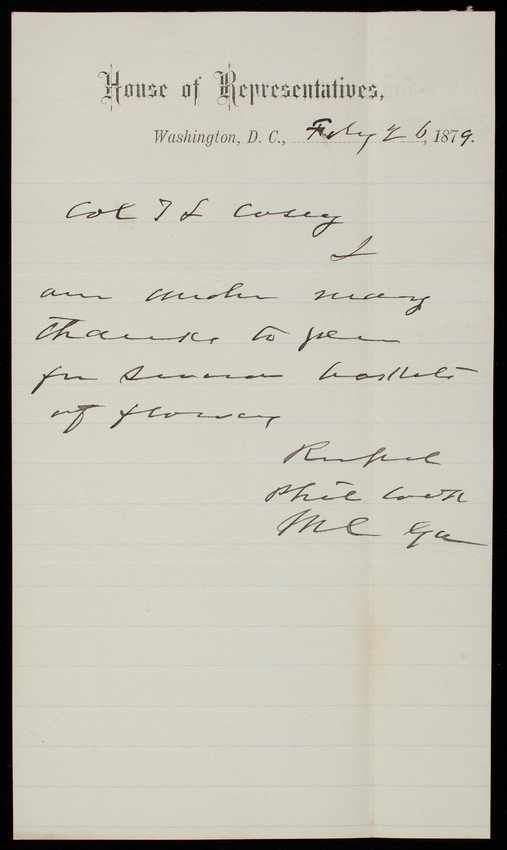 House of Representatives,
Washington, D. C., Feby 26, 1879.
Col T L Casey
I
am under many
thanks to you
for several baskets
of flowers
Respcl
Phil Cook
M C Ga